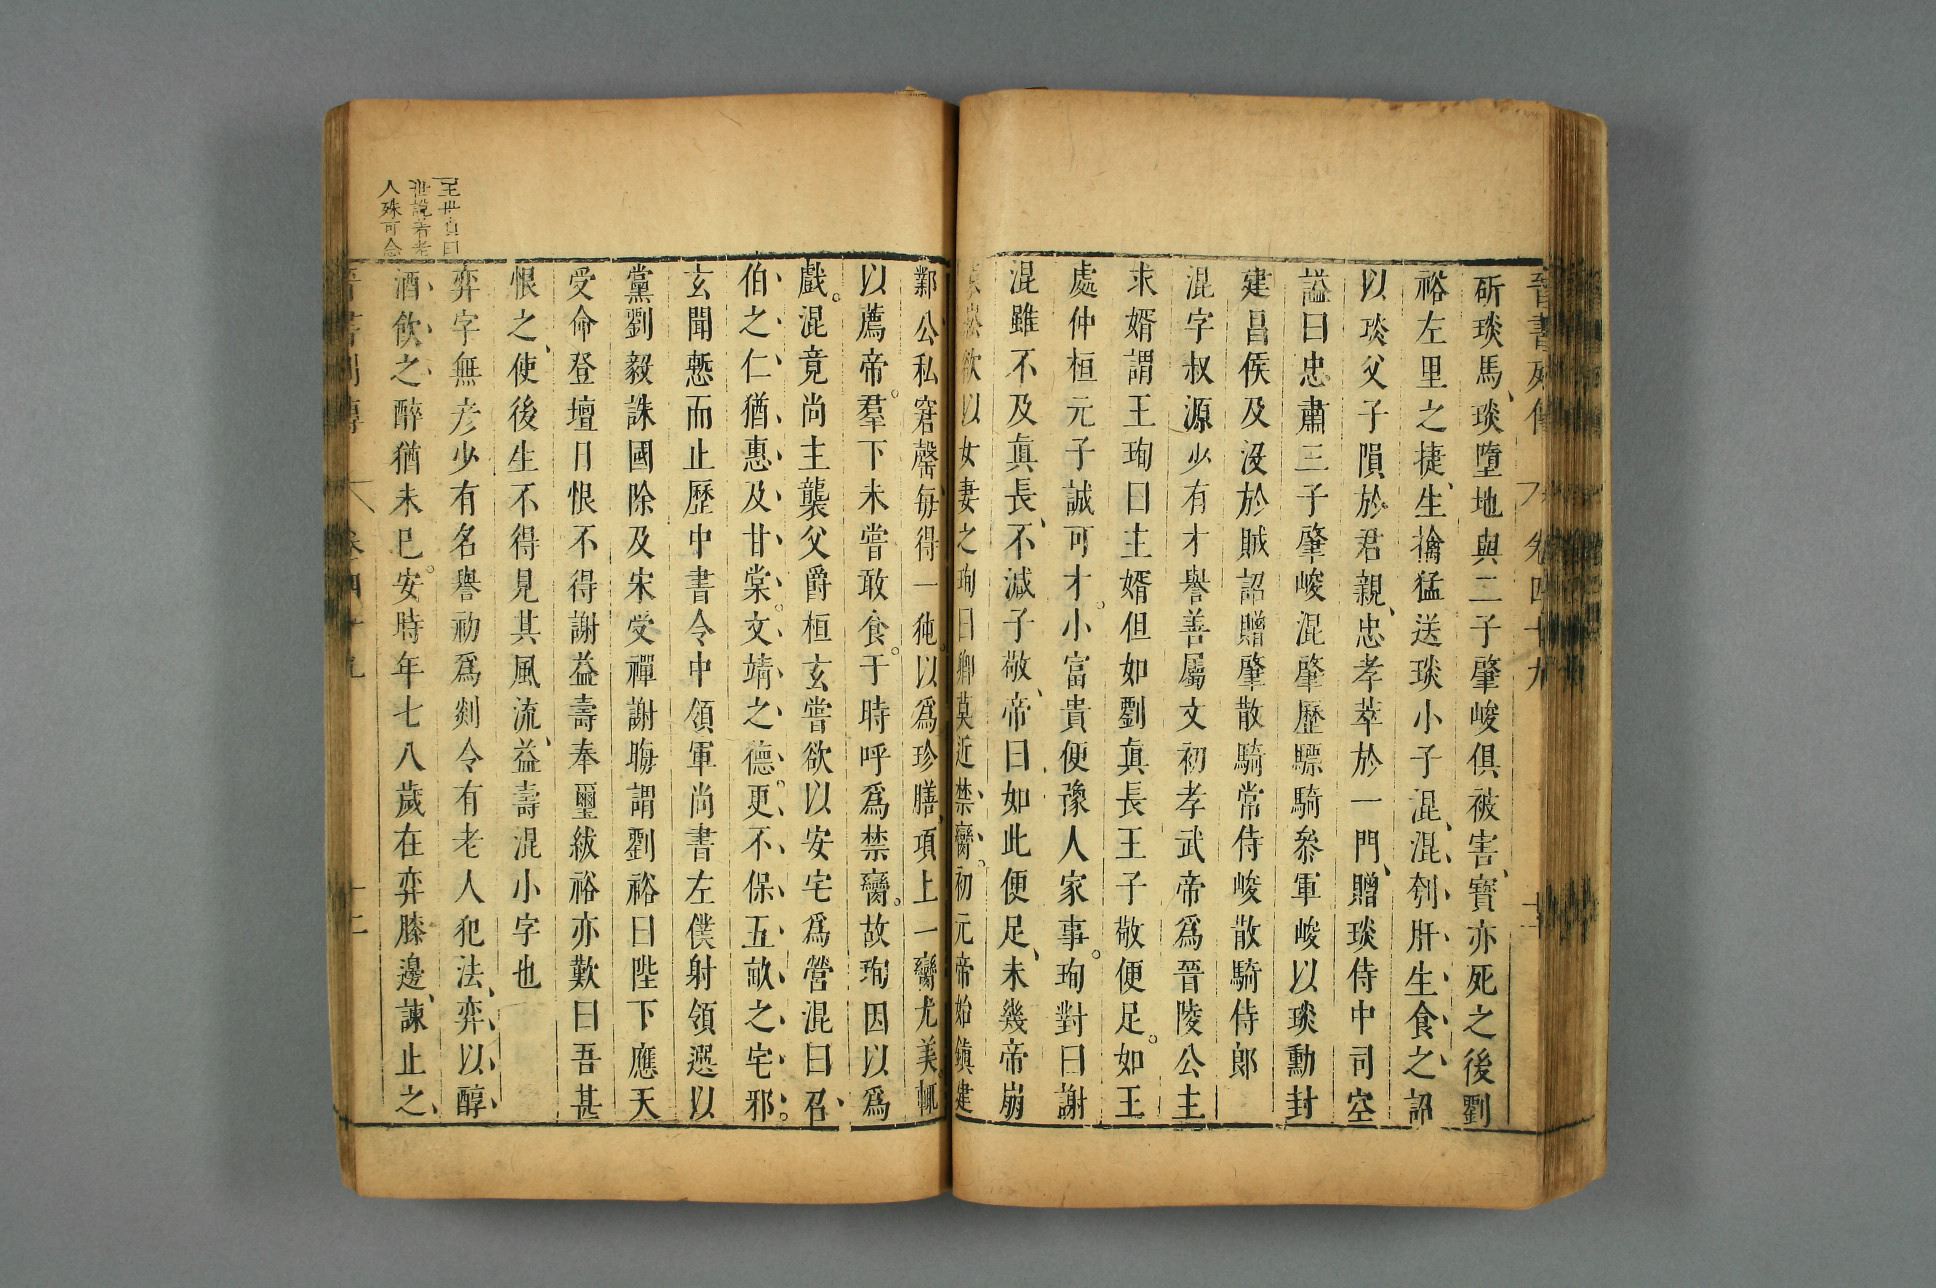 晉書列傳 卷四十九
斫琰馬琰墮地與二子肇峻俱被害寶亦死之後劉
裕左里之捷生擒猛送琰小子混混刳肝生食之詔
以琰父子隕於君親忠孝萃於一門贈琰侍中司空
謚曰忠肅三子肇峻混肇歷驃騎參軍峻以琰勳封
建昌侯及沒於賊詔贈肇散騎常侍峻散騎侍郎
混字叔源少有才譽善屬文初孝武帝爲晉陵公主
求婿謂王珣曰主婿但如劉眞長王子敬便足如王
處仲桓元子誠可才小富貴便豫人家事珣對曰謝
混雖不及眞長不減子敬帝曰如此便足未幾帝崩
袁崧欲以女妻之珣曰卿莫近禁臠初元帝始鎮建
鄴公私窘罄每得一㹠以爲珍膳項上一臠尤美輒
以薦帝羣下未嘗敢食于時呼爲禁臠故珣因以爲
戲混竟尚主襲父爵桓玄嘗欲以安宅爲營混曰召
伯之仁猶惠及甘棠文靖之德更不保五畝之宅邪
玄聞慙而止歷中書令中領軍尚書左僕射領選以
黨劉毅誅國除及宋受禪謝晦謂劉裕曰陛下應天
受命登壇日恨不得謝益壽奉璽紱裕亦歎曰吾甚
恨之使後生不得見其風流益壽混小字也
弈字無彥少有名譽初爲剡令有老人犯法弈以醇
酒飲之醉猶未已安時年七八歲在弈膝邊諫止之
晉書列傳 卷四十九 十二
王世貞曰
世說著老
人殊可念